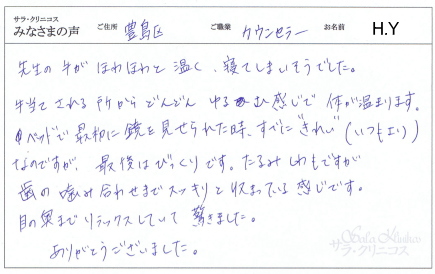 サラ・クリニコス
みなさまの声 ご住所 豊島区 ご職業 カウンセラー お名前 H.Y
先生の手が ほわほわと 温く、寝てしまいそうでした。
手当て される 所から どんどん ゆるむ 感じで 体が温まります。
ベッドで 最初に 鏡を 見せられた時、すでに "きれい" (いつもより)
なのですが、最後は びっくり です。たるみ しわ もですが
歯の 噛み合わせまで スッキリと 収まっている 感じです。
目の奥まで リラックスしていて 驚きました。
ありがとうございました。
Sala Klinikos
サラ・クリニコス